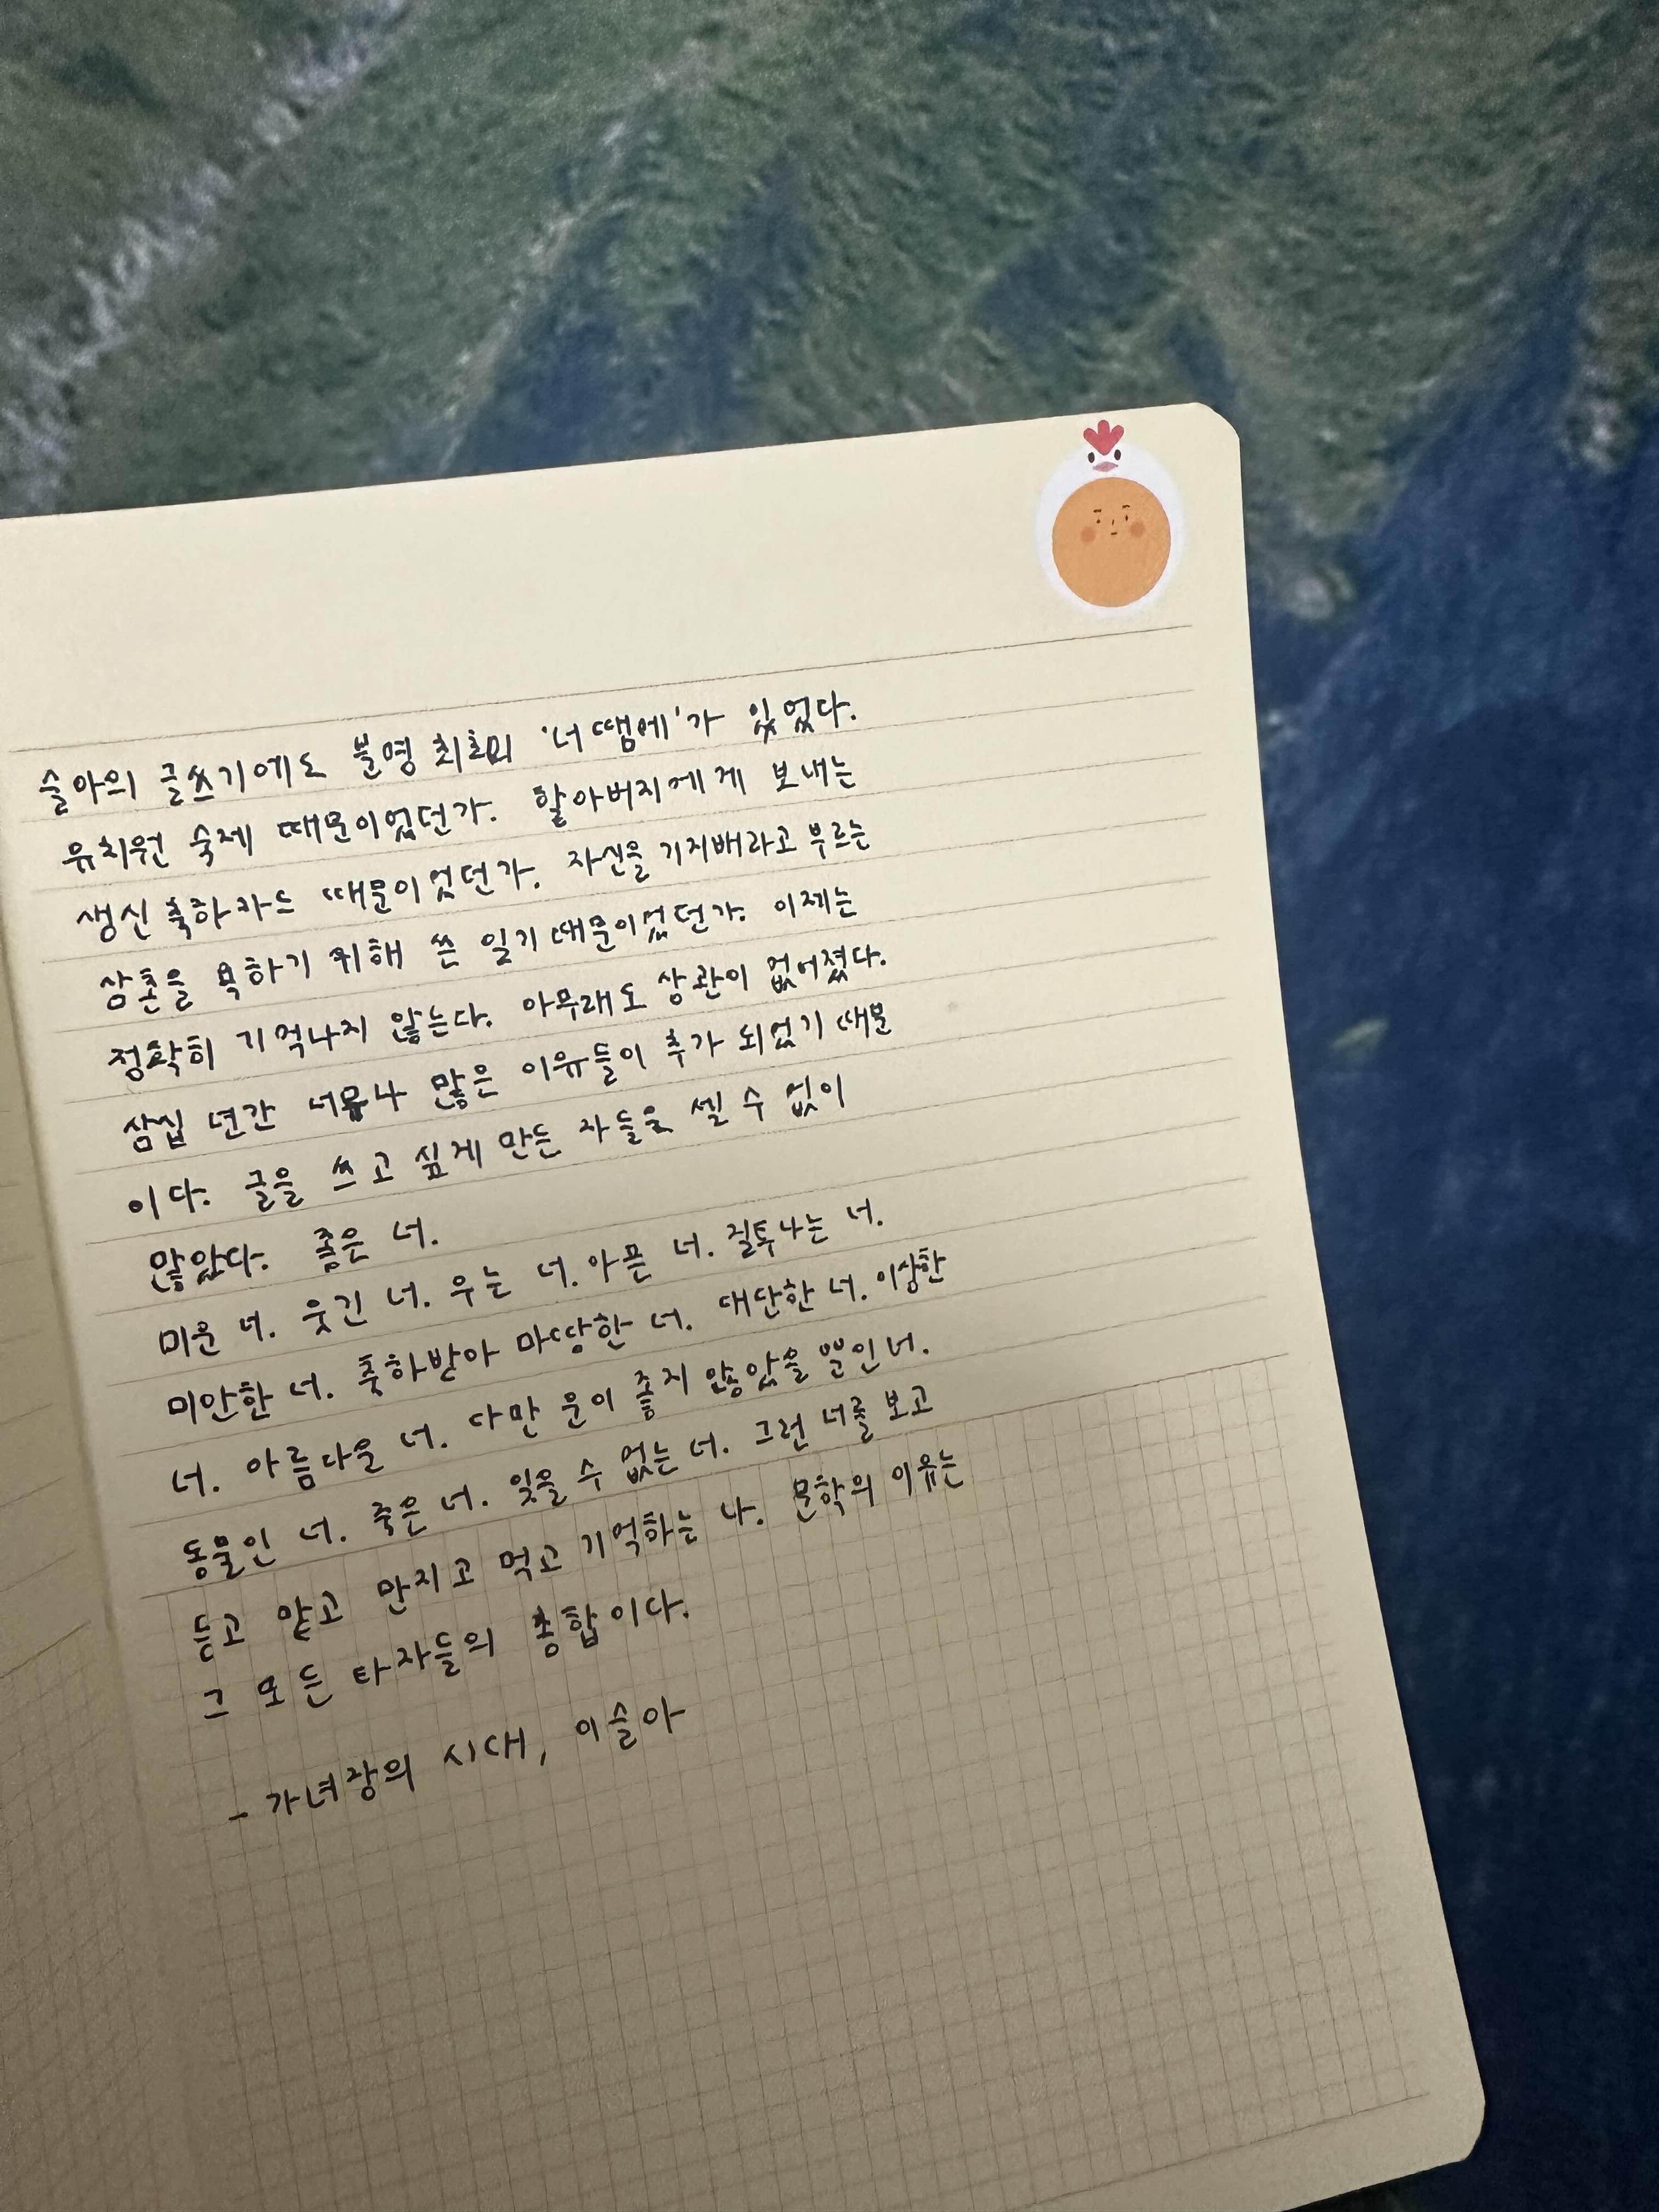 슬아의 글쓰기에도 분명 최초의 '너 땜에'가 있었다.
유치원 숙제 때문이었던가. 할아버지에게 보내는
생신 축하카드 때문이었던가. 자신을 기지배라고 부르는
삼촌을 욕하기 위해 쓴 일기 때문이었던가. 이제는
정확히 기억나지 않는다. 아무래도 상관이 없어졌다.
삼십 년간 너무나 많은 이유들이 추가 되었기 때문
이다. 글을 쓰고 싶게 만든 자들을 셀 수 없이
많았다. 좋은 너.
미운 너. 웃긴 너. 우는 너. 아픈 너. 질투나는 너.
미안한 너. 축하받아 마땅한 너. 대단한 너. 이상한
너. 아름다운 너. 다만 운이 좋지 않았을 뿐인 너.
동물인 너. 죽은 너. 잊을 수 없는 너. 그런 너를 보고
듣고 맡고 만지고 먹고 기억하는 나. 문학의 이유는
그 모든 타자들의 총합이다.
- 가녀장의 시대, 이슬아